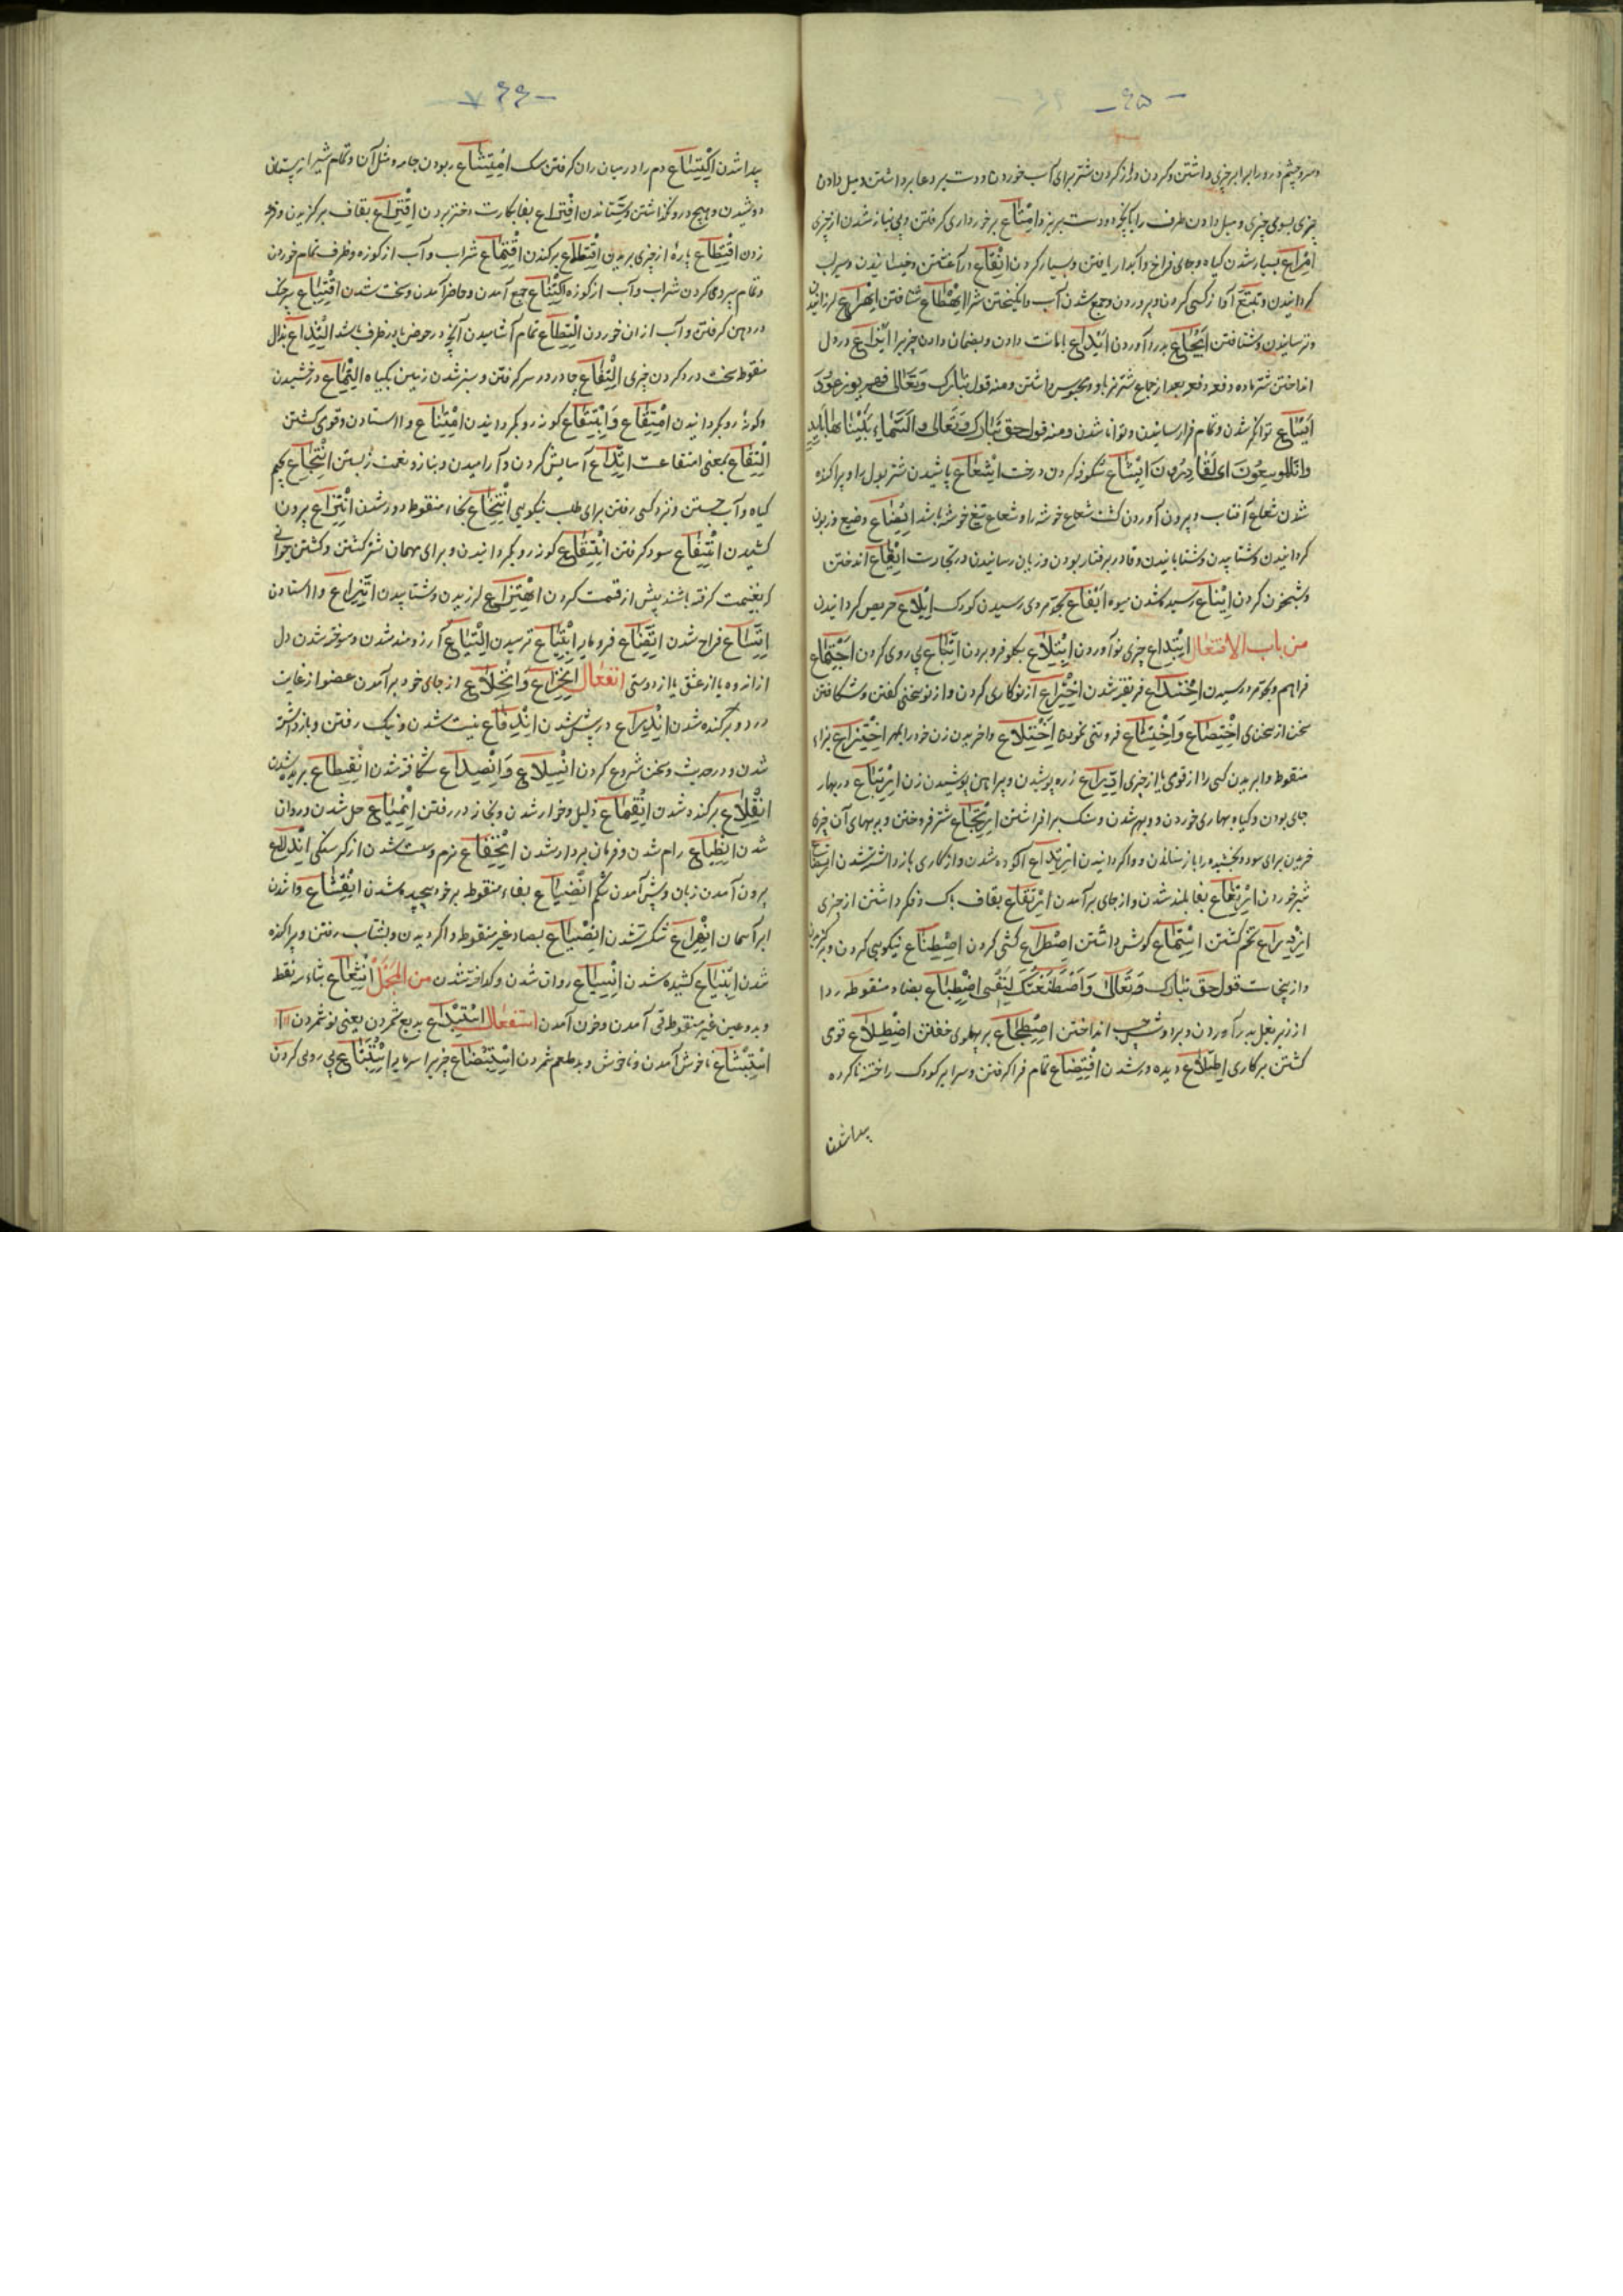 - ٤٥ -
و سر و چشم در و برابر چیزی داشتن و کردن دراز کردن شتر برای آب خوردن و دست بر دعا برداشتن و میل دادن
چیزی بسوی چیزی و میل دادن ظرف را اِمْتاع برخورداری گرفتن و بی نیاز شدن از چیزی
اِمْراع بسیار شدن گیاه و جای فراخ و آبدار یافتن و بسیار کردن اِنْقاع در آغشتن و خیسانیدن و سیراب
گردانیدن و آواز کسی کردن و پروردن و جمع شدن آب و انگیختن شر اِهْطاع شتافتن اِهْراع لرزانیدن
و ترسانیدن و شتافتن اِیْجاع بدرد آوردن اِیْداع امانت دادن و بضمان دادن چیز را اِیْزاع در دل
انداختن شتر ماده دفعه دفعه بعد از جماع شتر نر باو و محبوس داشتن و منه قوله تبارک وَ تَعالی فهم یوزعون
اِیْساع توانگر شدن و تمام فرا رسانیدن و توانا شدن و منه قول حق تَبارَکَ وَ تَعالی وَ السَّماءَ بَنَیْناها بِاَیْدٍ
وَ اِنّا لَمُوسِعُونَ ای لَقادِرُونَ اِیْشاع شکوفه کردن درخت اِیْشعاع پاشیدن شتر بول را و پراکنده
شدن شعاع آفتاب و بیرون آوردن کشت شعاع خوشه را و شعاع تیغ خوشه باشد اِیْضاع وضیع و زبون
گردانیدن و شتابیدن و شتابانیدن و قادر بر فتار بودن و زیان رسانیدن در تجارت اِیْقاع انداختن
و شبیخون کردن اِیْناع رسیده شدن میوه اِیْفاع بحد مردی رسیدن کودک اِیْلاع حریص گردانیدن
من باب الافتعال اِبْتِداع چیزی نو آوردن اِبْتِلاع بگلو فرو بردن اِتِّباع پی روی کردن اِجْتِماع
فراهم و بحد مرد رسیدن اِخْتِداع فریفته شدن اِخْتِراع از نو کاری کردن و از نو سخنی گفتن و شکافتن
سخن از سخن اِخْتِضاع وَ اِخْتِشاع فروتنی نمودن اِخْتِلاع واخریدن زن خود را بمهر اِخْتِزاع بزاء
منقوط وا بریدن کسی را از قومی یا از چیزی اِدِّراع زره پوشیدن و پیراهن پوشیدن زن اِرْتِباع در بهار
جای بودن و گیاه بهاری خوردن اِرْتِجاع شتر فروختن و ببهای آن چیز
خریدن برای سود و بخشیده را باز ستاندن و واگردانیدن اِرْتِداع آلوده شدن و از کاری باز داشته شدن اِرتضاع
شیر خوردن اِرْتِفاع بفا بلند شدن و از جای برآمدن اِرْتِقاع بقاف باک و فکر داشتن از چیزی
اِزْدِراع تخم کشتن اِسْتِماع گوش داشتن اِصْطِراع کشتی کردن اِصْطِناع نیکویی کردن و برگزیدن
و از اینجاست قول حق تبارک وَ تَعالی وَ اصْطَنَعْتُکَ لِنَفْسی اِضْطِباع بضاد منقوطه ردا
از زیر بغل بدر آوردن و بر دوش چپ انداختن اِضْطِجاع بر پهلوی خفتن اِضْطِلاع قوی
گشتن بر کاری اِطِّلاع دیده ور شدن اِفْتِضاع تمام فرا گرفتن و سر ابر کودک را ختنه ناکرده
پیدا شدن
- ٤٤ ٧
پیدا شدن اِکْتِساع دم را در میان ران گرفتن سگ اِمْتِشاع ربودن جامه و مثل آن و تمام شیر از پستان
دوشیدن و هیچ در و نگذاشتن و ستاندن اِفْتِراع بفا بکارت دختر بردن اِقْتِراع بقاف برگزیدن و قرعه
زدن اِقْتِطاع پارهٔ از چیزی بریدن اِقْتِلاع برکندن اِقْتِماع شراب و آب از کوزه و ظرف تمام خوردن
و تمام بیرون کردن شراب و آب از کوزه اِکْتِناع جمع آمدن و حاضر آمدن و سخت شدن اِقْتِباع سر خنک
در دهن گرفتن و آب از ان خوردن اِلْتِطاع تمام آشامیدن آنچه در حوض یا در ظرف باشد اِلْتِذاع بذال
منقوط سخت درد کردن چیزی اِلْتِفاع چادر در سر گرفتن و سبز شدن زمین بگیاه اِلْتِماع درخشیدن
و گونه رو بگردانیدن اِمْتِقاع وَ اِبْتِقاع گونه رو بگردانیدن اِمْتِناع وا استادن و قوی گشتن
اِلْتِقاع بمعنی امتقاعت اِتِّداع آسایش کردن و آرامیدن و بناز و نعمت زیستن اِنْتِجاع بجیم
گیاه و آب جستن و نزد کسی رفتن برای طلب نیکویی اِنْتِخاع بخاء منقوط دور شدن اِنْتِزاع بیرون
کشیدن اِنْتِفاع سود گرفتن اِنْتِقاع گونه رو بگردانیدن و برای مهمان شتر کشتن و کشتن حیوانی
که بغنیمت گرفته باشند پیش از قسمت کردن اِهْتِزاع لرزیدن و شتابیدن اِتِّزاع وا استادن
اِتِّساع فراخ شدن اِتِّضاع فرومایه اِرْتِیاع ترسیدن اِلْتِیاع آرزومند شدن و سوخته شدن دل
از اندوه یا از عشق یا از دوستی انفعال اِنْخِزاع وَ اِنْخِلاع از جای خود برآمدن عضو از غایت
درد و برکنده شدن اِنْدِراع در پیش شدن اِنْدِفاع نیست شدن و نیک رفتن و باز داشته
شدن و در حدیث و سخن شروع کردن اِنْسِلاع وَ اِنْصِداع شکافته شدن اِنْقِطاع بریده شدن
اِنْقِلاع برکنده شدن اِنْقِماع ذلیل و خوار شدن و بخانه در رفتن اِنْمِیاع حل شدن و روان
شدن اِنْطِیاع رام شدن و فرمان بردار شدن اِنْخِفاع نرم و سست شدن از گرسنگی اِنْدِلاع
بیرون آمدن زبان و پیش آمدن شکم بفاء منقوط بر خود پیچیده شدن اِنْقِشاع وا شدن
ابر آسمان اِنْهِزاع شکسته شدن اِنْصِیاع بصاد غیر منقوط واگردیدن و بشتاب رفتن و پراکنده
شدن کشیده شدن اِنْسِیاع روان شدن و گداخته شدن من المُجْمَل اِنْثِعاع بثاء سه نقط
و بدو عین غیر منقوط قی آمدن و خون آمدن استفعال اِسْتِبْداع بدیع شمردن یعنی نو شمردن
اِسْتِبْشاع ناخوش آمدن و ناخوش و بدطعم شمردن اِسْتِبْضاع چیز را سرمایه اِسْتِتْباع پی روی کردن